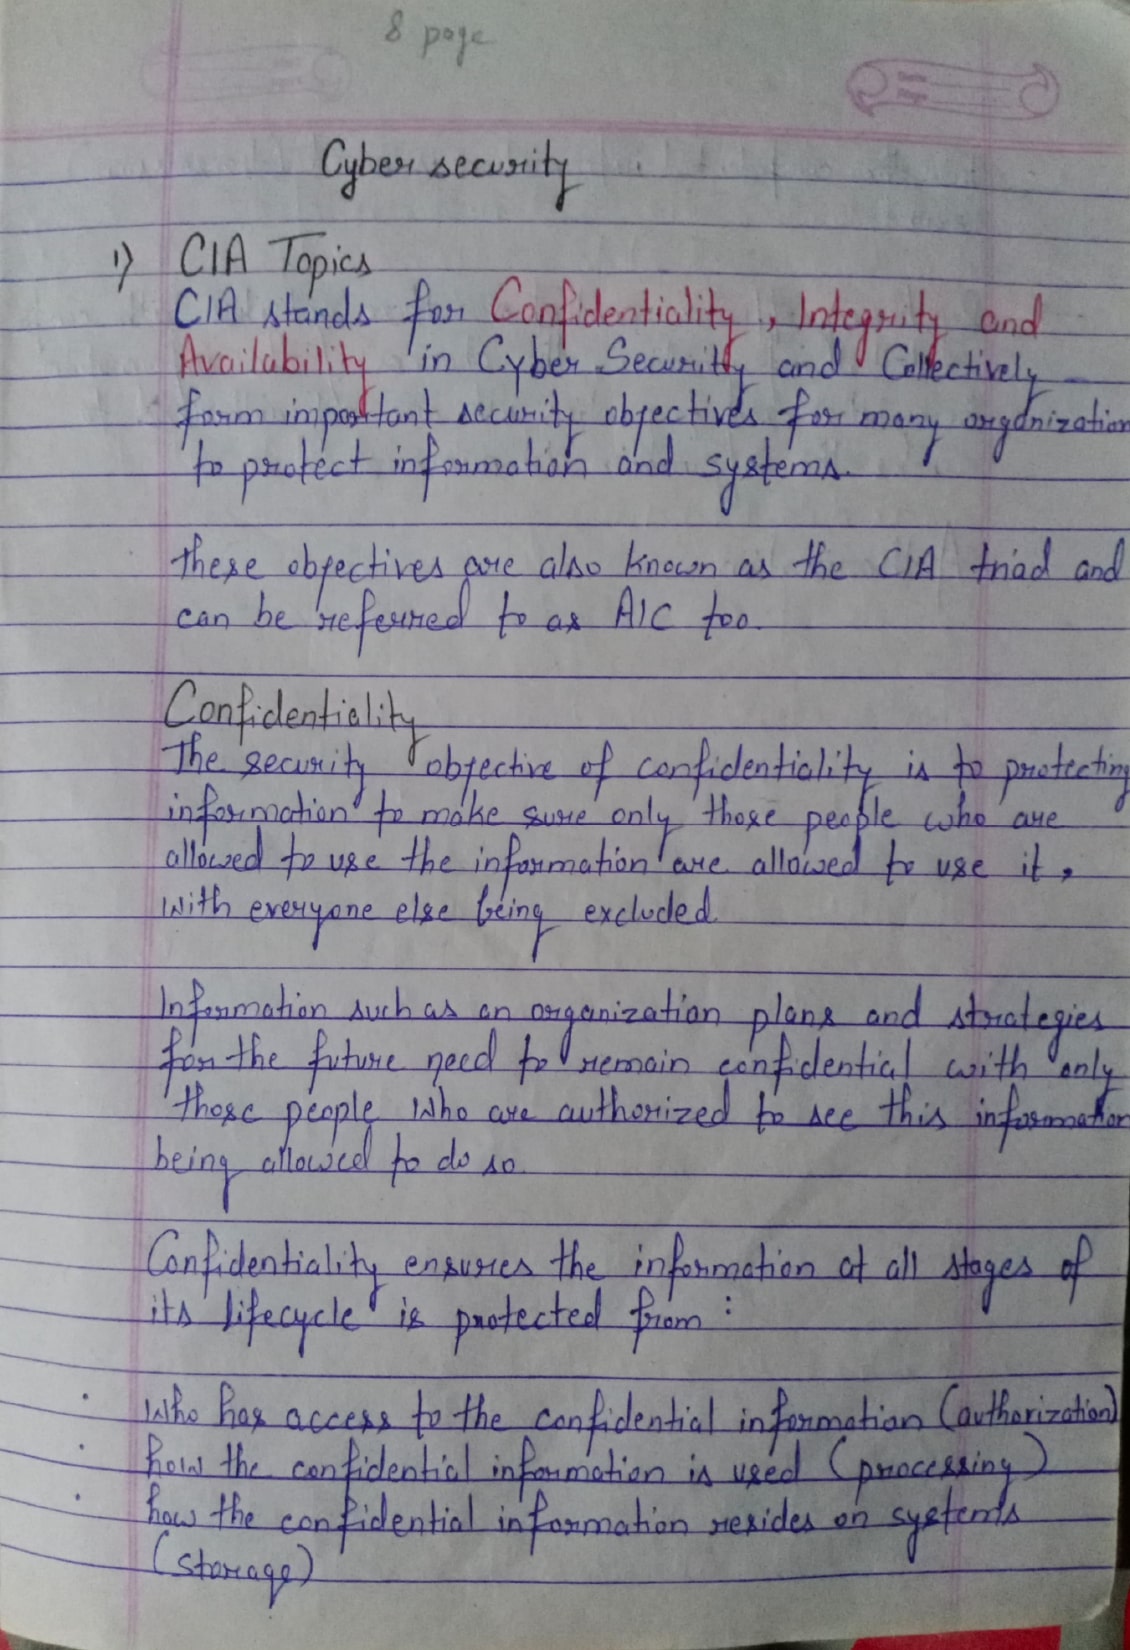 8 page
Cyber security
1) CIA Topics
CIA stands for Confidentiality, Integrity and
Availability in Cyber Security and Collectively
form important security objectives for many organization
to protect information and systems.
these objectives are also known as the CIA triad and
can be referred to as AIC too.
Confidentiality
The security objective of confidentiality is to protecting
information to make sure only those people who are
allowed to use the information are allowed to use it,
with everyone else being excluded
Information such as an organization plans and strategies
for the future need to remain confidential with only
those people who are authorized to see this information
being allowed to do so
Confidentiality ensures the information at all stages of
its lifecycle is protected from :
· Who has access to the confidential information (authorization)
· how the confidential information is used (processing)
· how the confidential information resides on systems
(storage)